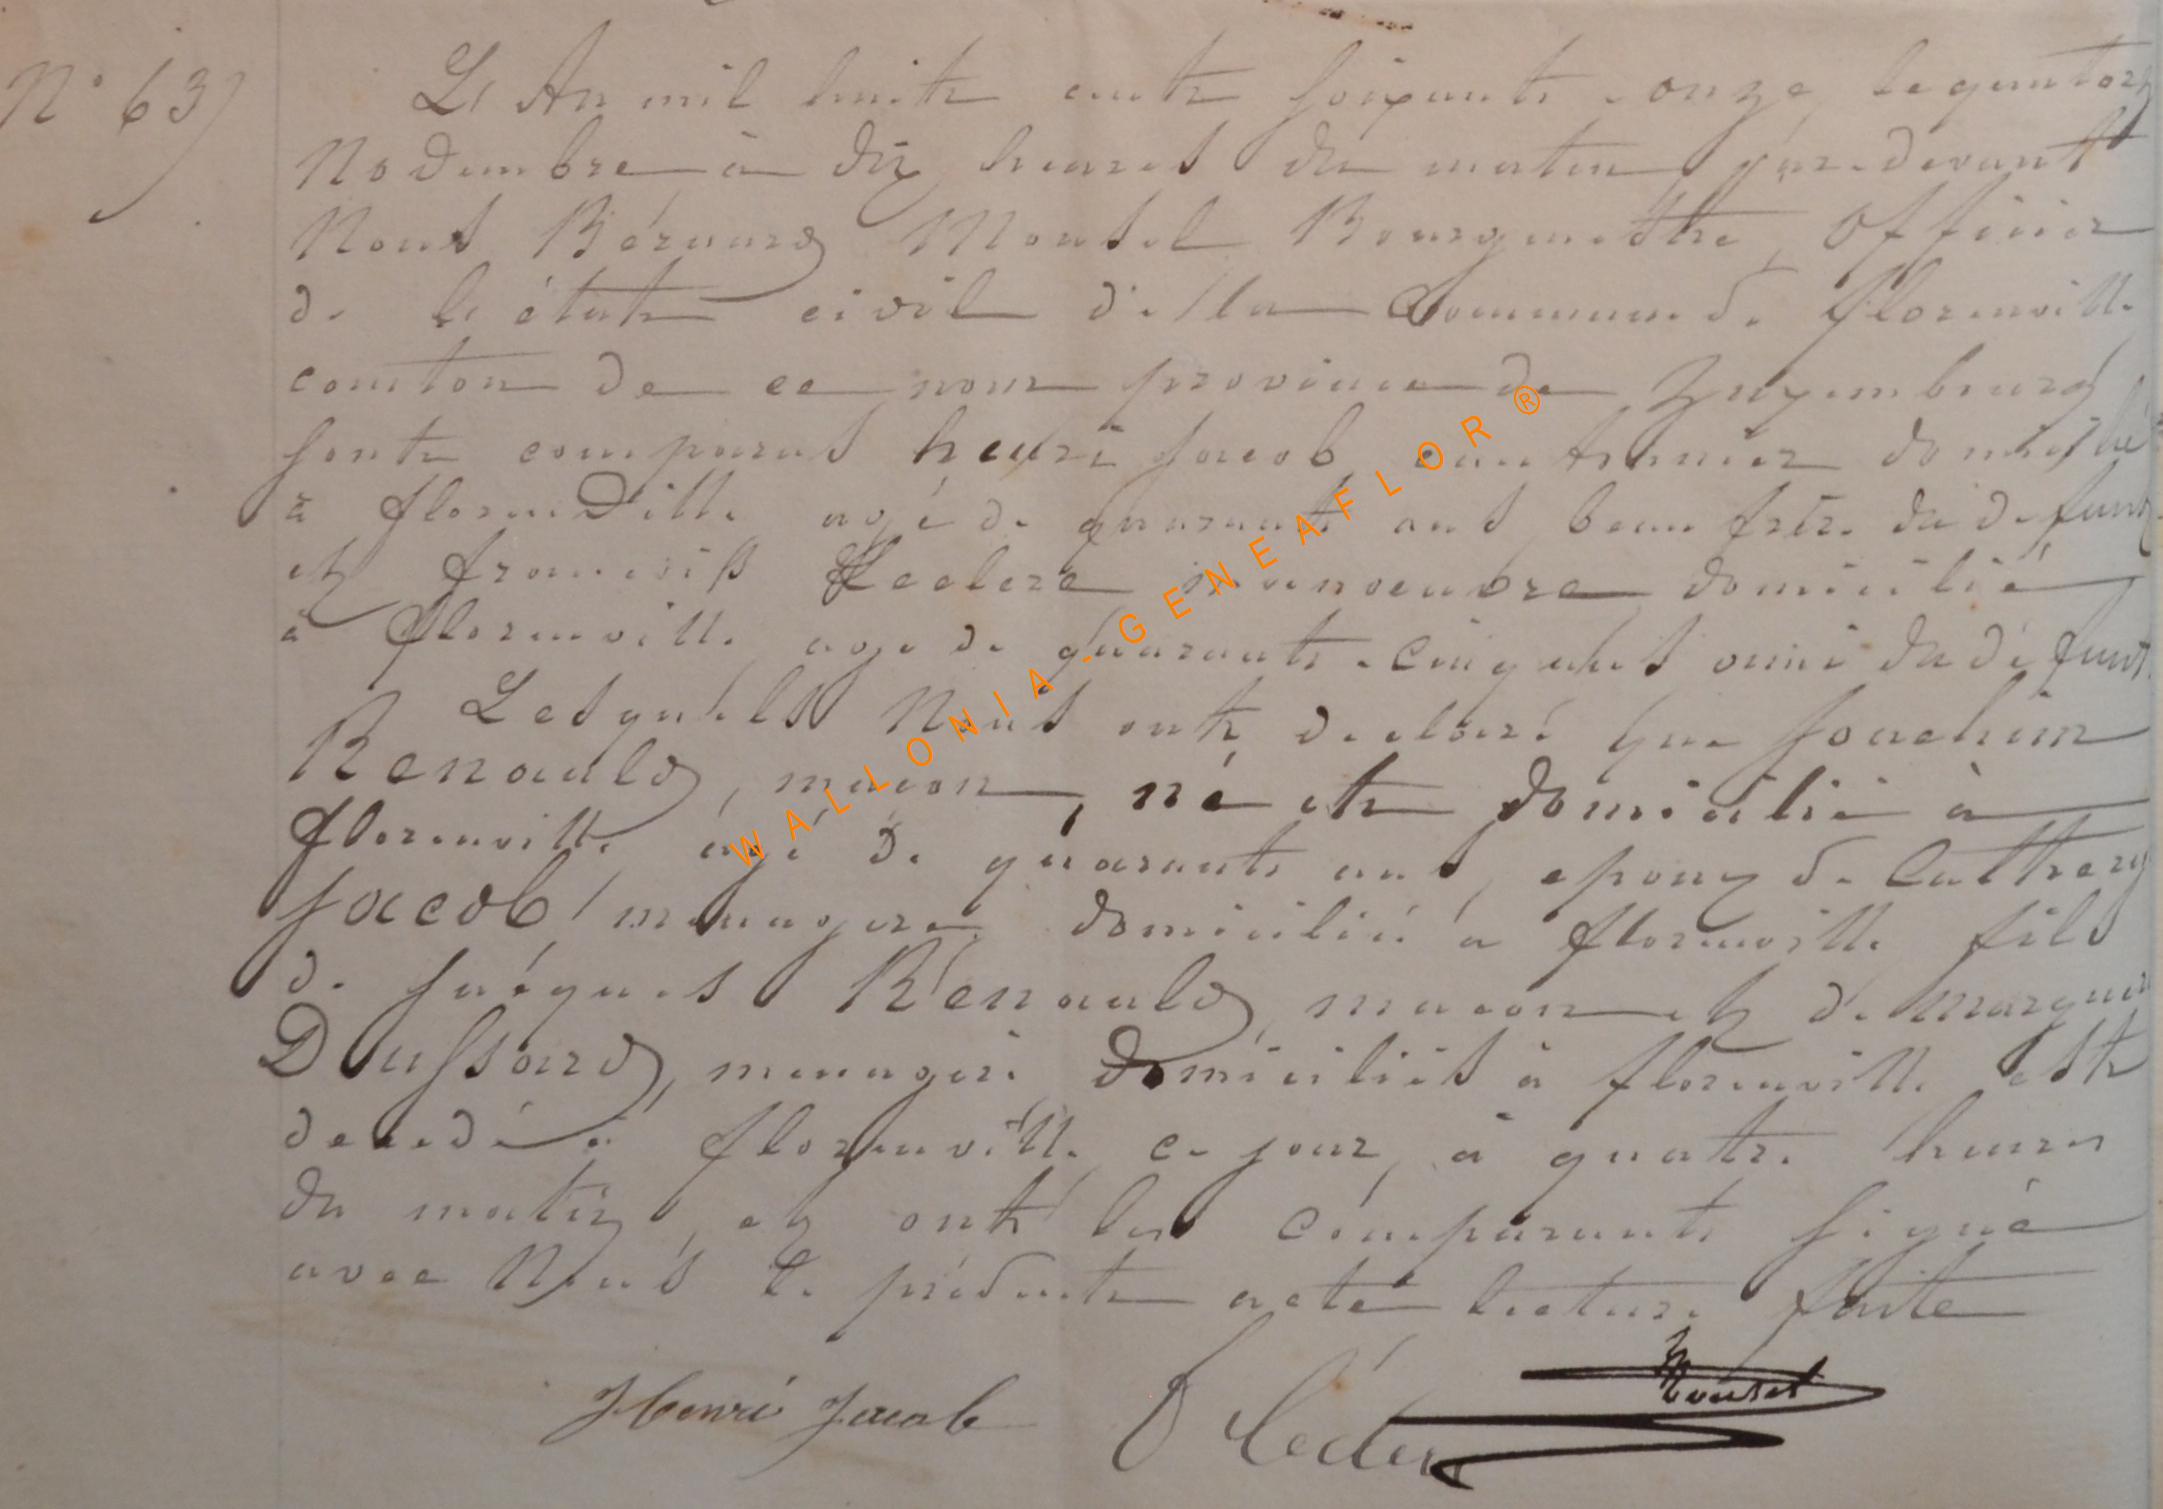 N° 63
L'An mil huit cent soixante-onze, le quatorze
Novembre à dix heures du matin pardevant
Nous Bérnard Monsel Bourgmestre, Officier
de l'état civil de la Commune de florenville
canton de ce nom province de Luxembourg
sont comparus henri Jacob, cantonnier domicilié
à florenville agé de quarante ans beau frère du defunt
et francois Leclere manoeuvre domicilié
à florenville agé de quarante-cinq ans ami du défunt
Lesquels Nous ont declaré que Joachim
Renauld, macon, né et domicilié à
florenville, agé de quarante ans, epoux de Cathery
Jacob, menagere domiciliée à florenville fils
de Jacques Rénauld, macon et de Marguer
Dussard, menagere domiciliés à florenville est
decedé à florenville ce jour, à quatre heures
du matin, et ont les comparants signé
avec Nous le présent acte lecture faite
Henri Jacob
Monsel
Lecler
WALLONIA-GENEAFLOR®